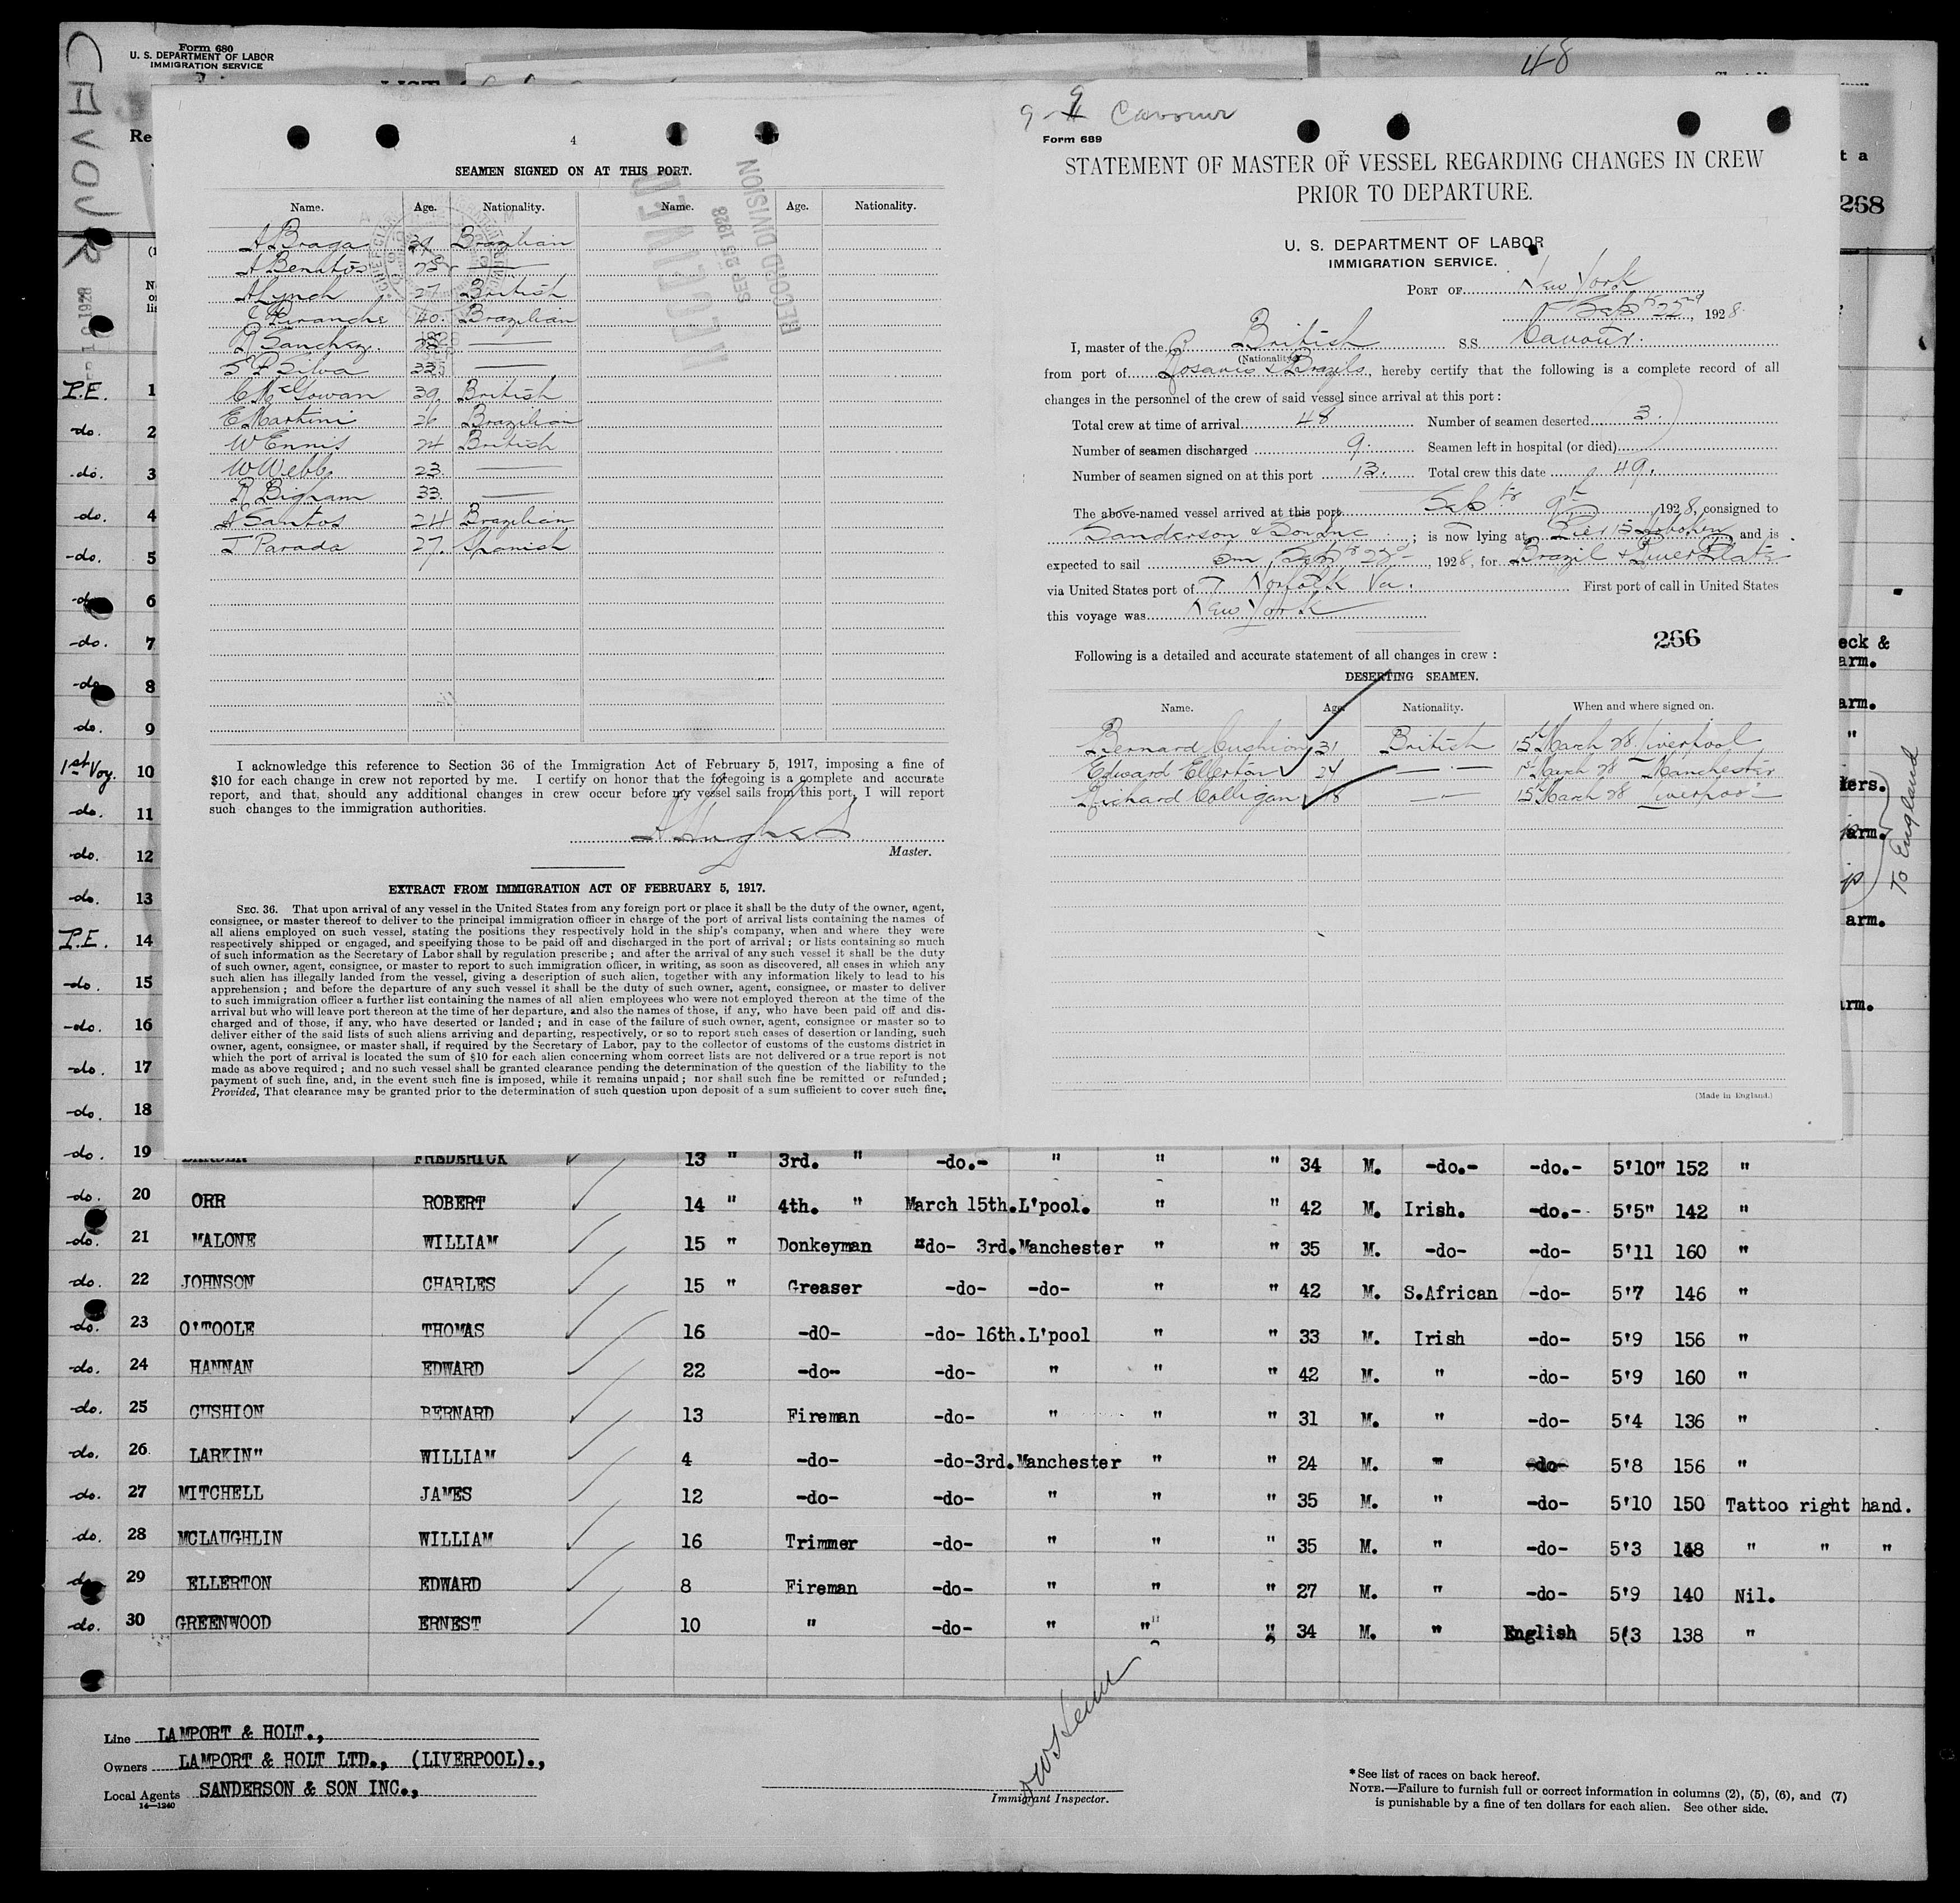 CAVOUR
Form 680
U. S. DEPARTMENT OF LABOR
IMMIGRATION SERVICE
48
268
4
SEAMEN SIGNED ON AT THIS PORT.
Name. Age. Nationality. Name. Age. Nationality.
A Braga 39 Brazilian
A Benatos
A Lynch 27 British
40. Brazilian
R Sanchez.
S P Silva 33
C McGowan 39. British
E Martini 26 Brazilian
W Ennis 24 British
W Webb. 23.
R Bigham 33.
A Santos 24 Brazilian
J Parada 27. Spanish
RECEIVED
SEP 25 1928
RECORD DIVISION
I acknowledge this reference to Section 36 of the Immigration Act of February 5, 1917, imposing a fine of
$10 for each change in crew not reported by me. I certify on honor that the foregoing is a complete and accurate
report, and that, should any additional changes in crew occur before my vessel sails from this port, I will report
such changes to the immigration authorities.
A Hughes
Master.
EXTRACT FROM IMMIGRATION ACT OF FEBRUARY 5, 1917.
SEC. 36. That upon arrival of any vessel in the United States from any foreign port or place it shall be the duty of the owner, agent,
consignee, or master thereof to deliver to the principal immigration officer in charge of the port of arrival lists containing the names of
all aliens employed on such vessel, stating the positions they respectively hold in the ship's company, when and where they were
respectively shipped or engaged, and specifying those to be paid off and discharged in the port of arrival; or lists containing so much
of such information as the Secretary of Labor shall by regulation prescribe; and after the arrival of any such vessel it shall be the duty
of such owner, agent, consignee, or master to report to such immigration officer, in writing, as soon as discovered, all cases in which any
such alien has illegally landed from the vessel, giving a description of such alien, together with any information likely to lead to his
apprehension; and before the departure of any such vessel it shall be the duty of such owner, agent, consignee, or master to deliver
to such immigration officer a further list containing the names of all alien employees who were not employed thereon at the time of the
arrival but who will leave port thereon at the time of her departure, and also the names of those, if any, who have been paid off and dis-
charged and of those, if any, who have deserted or landed; and in case of the failure of such owner, agent, consignee or master so to
deliver either of the said lists of such aliens arriving and departing, respectively, or so to report such cases of desertion or landing, such
owner, agent, consignee, or master shall, if required by the Secretary of Labor, pay to the collector of customs of the customs district in
which the port of arrival is located the sum of $10 for each alien concerning whom correct lists are not delivered or a true report is not
made as above required; and no such vessel shall be granted clearance pending the determination of the question of the liability to the
payment of such fine, and, in the event such fine is imposed, while it remains unpaid; nor shall such fine be remitted or refunded;
Provided, That clearance may be granted prior to the determination of such question upon deposit of a sum sufficient to cover such fine.
9-9 Cavour
Form 689
STATEMENT OF MASTER OF VESSEL REGARDING CHANGES IN CREW
PRIOR TO DEPARTURE.
U. S. DEPARTMENT OF LABOR
IMMIGRATION SERVICE.
PORT OF New York
Sept 22nd, 1928.
I, master of the British S.S. Cavour.
(Nationality)
from port of Rosario & Brazils, hereby certify that the following is a complete record of all
changes in the personnel of the crew of said vessel since arrival at this port:
Total crew at time of arrival 48 Number of seamen deserted 3.
Number of seamen discharged 9. Seamen left in hospital (or died)
Number of seamen signed on at this port 13. Total crew this date 49.
The above-named vessel arrived at this port Sept 9th, 1928, consigned to
Sanderson & Son Inc; is now lying at Pier 15 Hoboken, and is
expected to sail Sept 22nd, 1928, for Brazil & River Plate
via United States port of Norfolk Va. First port of call in United States
this voyage was New York
266
Following is a detailed and accurate statement of all changes in crew:
DESERTING SEAMEN.
Name. Age. Nationality. When and where signed on.
Bernard Cushion 31 British 15th March 28 Liverpool
Edward Ellerton 24 — " — March 28 Manchester
Richard Colligan 48 — " — 15th March 28 Liverpool
(Made in England.)
eck &
arm.
arm.
"
ers.
arm.
To England
arm.
arm.
P.E. 1
-do. 2
-do. 3
-do. 4
-do. 5
-do. 6
-do. 7
-do. 8
do. 9
1st Voy. 10
-do. 11
-do. 12
-do. 13
P.E. 14
-do. 15
-do. 16
-do. 17
-do. 18
-do. 19 FREDERICK 13 " 3rd. " -do.- " " " 34 M. -do.- -do.- 5'10" 152 "
-do. 20 ORR ROBERT 14 " 4th. " March 15th.L'pool. " " 42 M. Irish. -do.- 5'5" 142 "
-do. 21 MALONE WILLIAM 15 " Donkeyman "do- 3rd.Manchester " " 35 M. -do- -do- 5'11 160 "
-do. 22 JOHNSON CHARLES 15 " Greaser -do- -do- " " 42 M. S.African -do- 5'7 146 "
do. 23 O'TOOLE THOMAS 16 -dO- -do- 16th.L'pool " " 33 M. Irish -do- 5'9 156 "
-do. 24 HANNAN EDWARD 22 -do- -do- " " " 42 M. " -do- 5'9 160 "
-do. 25 CUSHION BERNARD 13 Fireman -do- " " " 31 M. " -do- 5'4 136 "
-do. 26 LARKIN" WILLIAM 4 -do- -do-3rd.Manchester " " 24 M. " -do- 5'8 156 "
-do. 27 MITCHELL JAMES 12 -do- -do- " " " 35 M. " -do- 5'10 150 Tattoo right hand.
-do. 28 MCLAUGHLIN WILLIAM 16 Trimmer -do- " " " 35 M. " -do- 5'3 148 " " "
-do. 29 ELLERTON EDWARD 8 Fireman -do- " " " 27 M. " -do- 5'9 140 Nil.
-do. 30 GREENWOOD ERNEST 10 " -do- " " " 34 M. " English 5(3 138 "
Line LAMPORT & HOLT.,
Owners LAMPORT & HOLT LTD., (LIVERPOOL).,
Local Agents SANDERSON & SON INC.,
14—1240
Immigrant Inspector.
*See list of races on back hereof.
NOTE.—Failure to furnish full or correct information in columns (2), (5), (6), and (7)
is punishable by a fine of ten dollars for each alien. See other side.